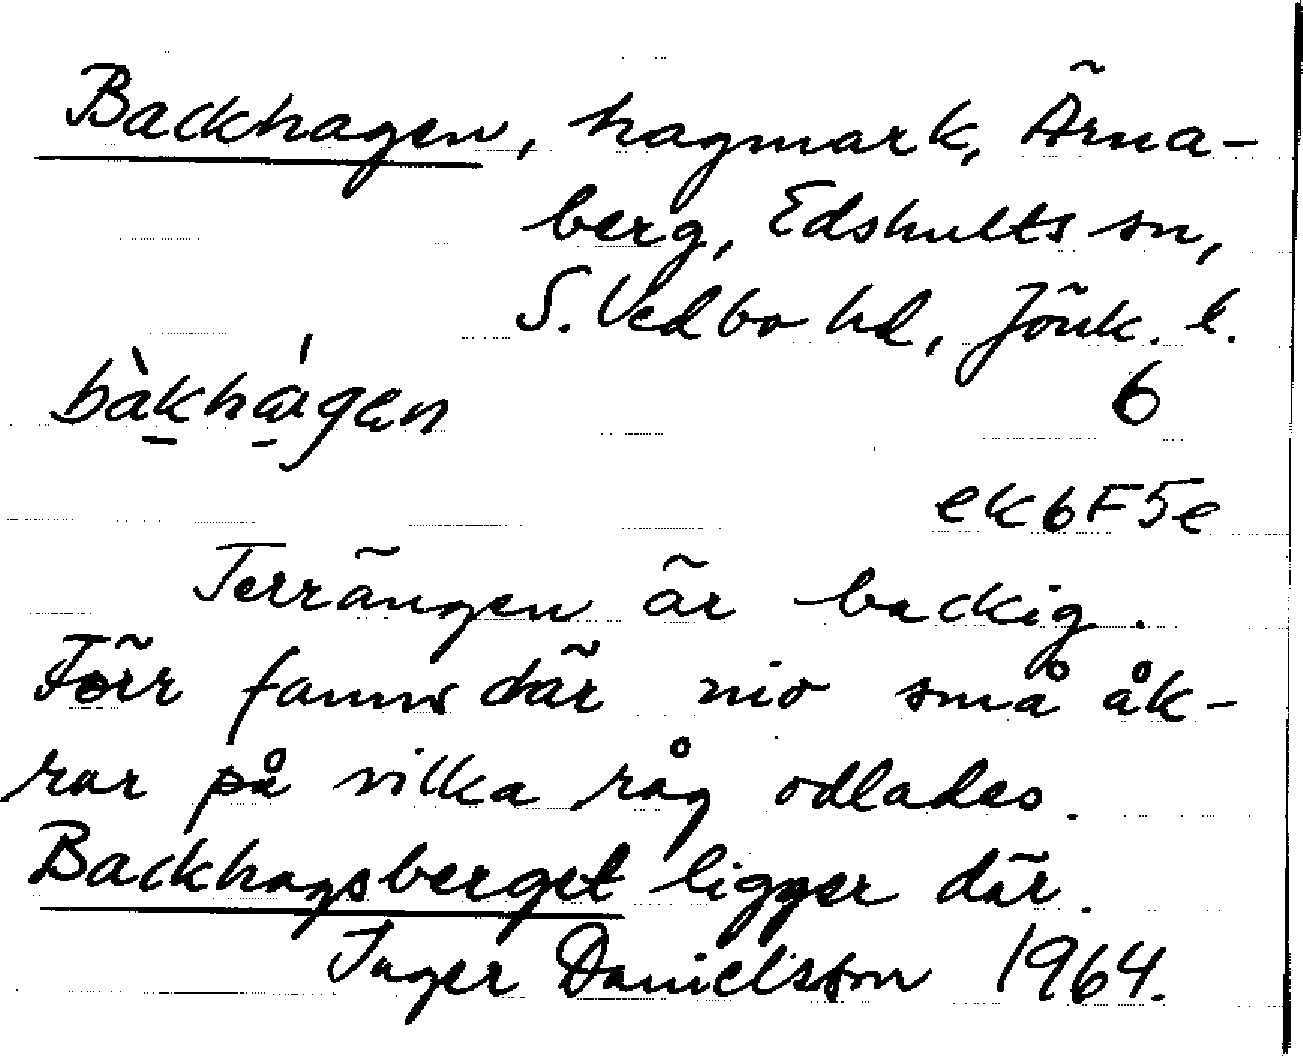 Backhagen, hagmark, Ärna-
berg, Edshults sn,
S. Vedbo hd, Jönk. l.
bàkhágen 6
ek6F5e
Terrängen är backig.
Förr fanns där nio små åk-
rar på vilka råg odlades.
Backhagsberget ligger där.
Inger Danielsson 1964.